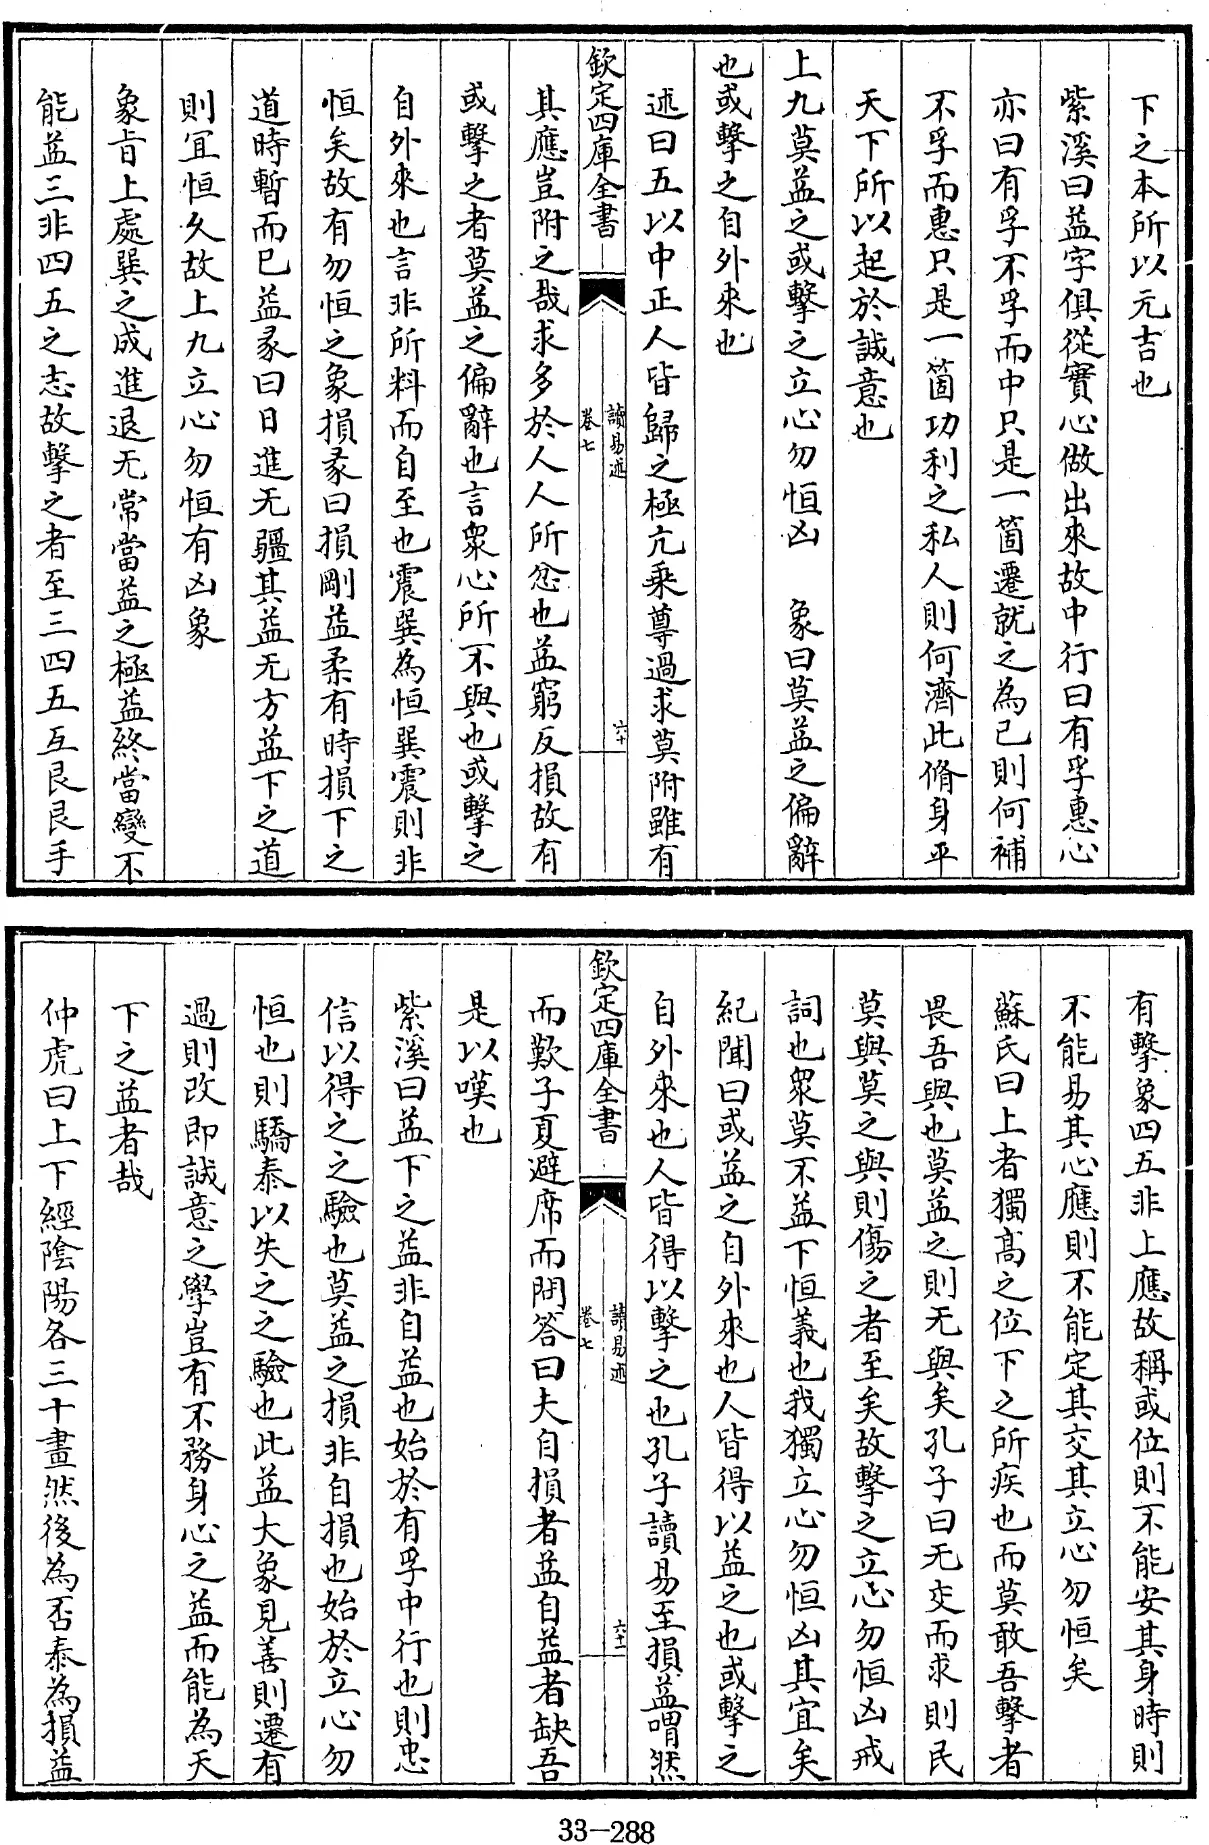 下之本所以元吉也
紫溪曰益字俱從實心做出來故中行曰有孚惠心
亦曰有孚不孚而中只是一箇遷就之為已則何補
不孚而惠只是一箇功利之私人則何濟此脩身平
天下所以起於誠意也
上九莫益之或擊之立心勿恒凶　象曰莫益之偏辭
也或擊之自外來也
述曰五以中正人皆歸之極亢乘尊過求莫附雖有
欽定四庫全書
讀易述
卷七
六十
其應豈附之哉求多於人人所忿也益窮反損故有
或擊之者莫益之偏辭也言衆心所不與也或擊之
自外來也言非所料而自至也震巽為恒巽震則非
恒矣故有勿恒之象損彖曰損剛益柔有時損下之
道時暫而已益彖曰日進无疆其益无方益下之道
則冝恒久故上九立心勿恒有凶象
象㫖上處巽之成進退无常當益之極益終當變不
能益三非四五之志故擊之者至三四五互艮艮手
有擊象四五非上應故稱或位則不能安其身時則
不能易其心應則不能定其交其立心勿恒矣
蘇氏曰上者獨高之位下之所疾也而莫敢吾擊者
畏吾與也莫益之則无與矣孔子曰无交而求則民
莫與莫之與則傷之者至矣故擊之立心勿恒凶戒
詞也衆莫不益下恒義也我獨立心勿恒凶其宜矣
紀聞曰或益之自外來也人皆得以益之也或擊之
自外來也人皆得以擊之也孔子讀易至損益喟然
欽定四庫全書
讀易述
卷七
六十一
而歎子夏避席而問答曰夫自損者益自益者缺吾
是以嘆也
紫溪曰益下之益非自益也始於有孚中行也則忠
信以得之之驗也莫益之損非自損也始於立心勿
恒也則驕泰以失之之驗也此益大象見善則遷有
過則改即誠意之學豈有不務身心之益而能為天
下之益者哉
仲虎曰上下經陰陽各三十畫然後為否泰為損益
33-288